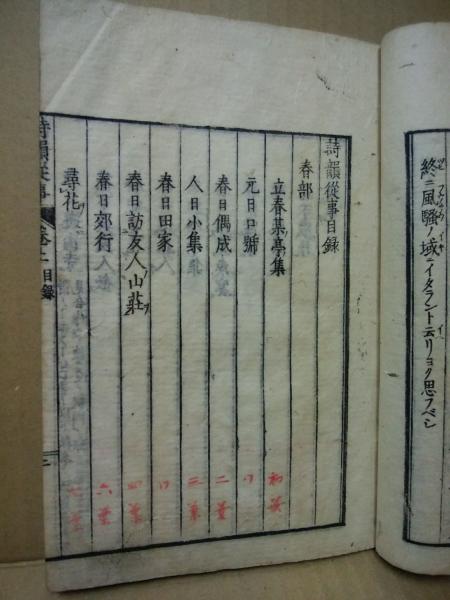 終ニ風騷ノ域ニイタラント云リヨク思フベシ
詩韻從事目録
春部
立春某亭集
元日口號
春日偶成
人日小集
春日田家
春日訪友人山莊
春日郊行
尋花
詩韻從事 卷上 目録
初葉
二葉
三葉
四葉
六葉